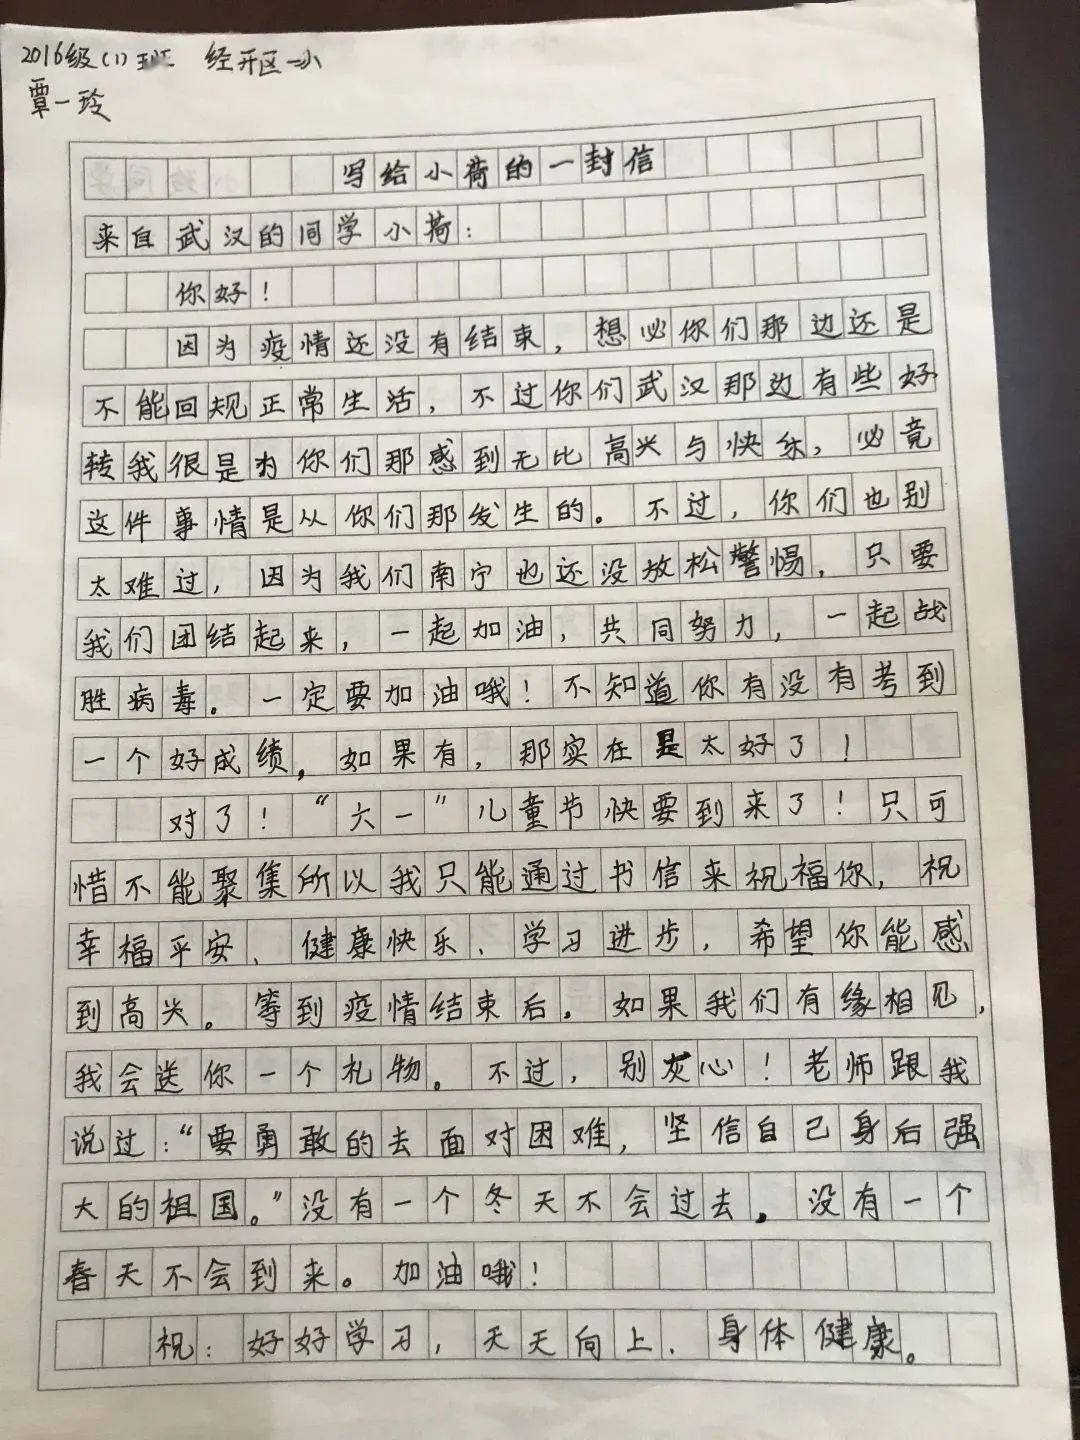 2016级(1)班 经开区一小
覃一玲
写给小荷的一封信
来自武汉的同学小荷：
你好！
因为疫情还没有结束，想必你们那边还是
不能回规正常生活，不过你们武汉那边有些好
转我很是为你们那感到无比高兴与快乐，必竟
这件事情是从你们那发生的。不过，你们也别
太难过，因为我们南宁也还没放松警惕，只要
我们团结起来，一起加油，共同努力，一起战
胜病毒。一定要加油哦！不知道你有没有考到
一个好成绩，如果有，那实在是太好了！
对了！“六一”儿童节快要到来了！只可
惜不能聚集所以我只能通过书信来祝福你，祝
幸福平安、健康快乐、学习进步，希望你能感
到高兴。等到疫情结束后。如果我们有缘相见，
我会送你一个礼物。不过，别灰心！老师跟我
说过：“要勇敢的去面对困难，坚信自己身后强
大的祖国。”没有一个冬天不会过去。没有一个
春天不会到来。加油哦！
祝：好好学习，天天向上、身体健康。